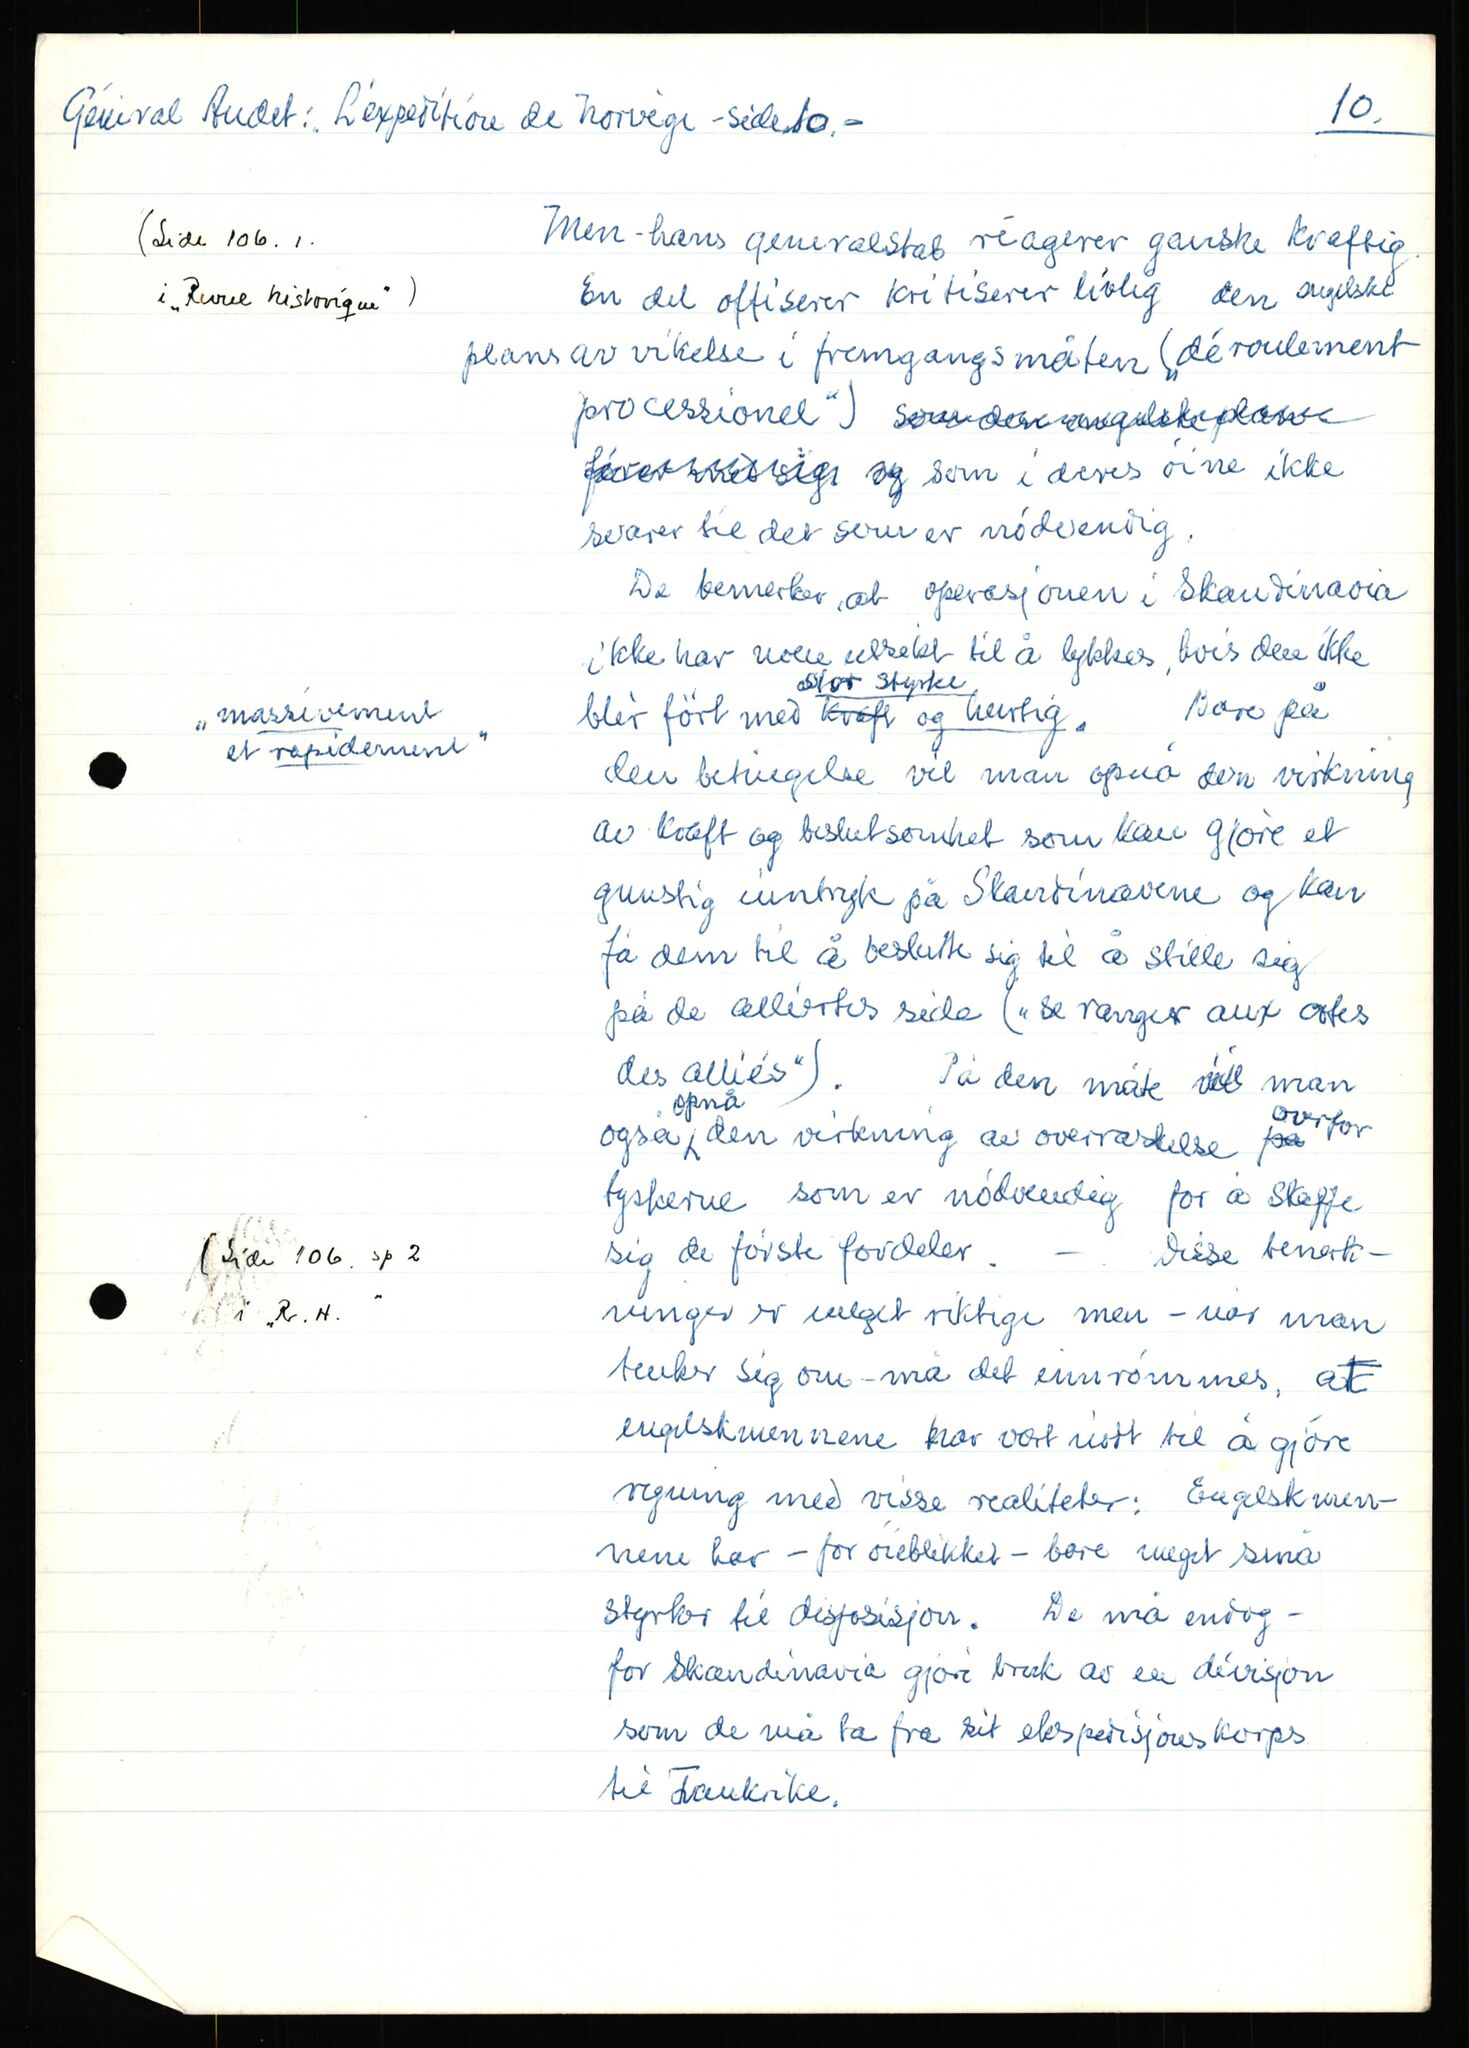 Général Audet: L'expedition de Norvège - side 10.-
10.
(Side 106. 1.
i „Revue historique")
Men - hans generalstab reagerer ganske kraftig.
En del offiserer kritiserer livlig den engelske
plans avvikelse i fremgangsmåten („déroulement
processionel") som den engelske plan
fører med sig og som i deres öine ikke
svarer til det som er nödvendig.
De bemerker, at operasjonen i Skandinavia
ikke har noen utsikt til å lykkes, hvis den ikke
stor styrke
blir fört med kraft og hurtig. Bare på
„massivement
et rapidement"
den betingelse vil man opnå den virkning
av kraft og beslutsomhet som kan gjöre et
gunstig inntryk på Skandinavene og kan
få dem til å beslutte sig til å stille sig
på de alliertes side („se ranger aux cotes
des alliés"). På den måte vil man
opnå overfor
også den virkning av overraskelse på
tyskerne som er nödvendig for å skaffe
sig de förste fordeler. - Disse bemerk-
(Side 106. sp 2
i „R. H."
ninger er meget riktige men - når man
tenker sig om - må det innrömmes, at
engelskmennene har vært nödt til å gjöre
regning med visse realiteter: Engelskmen-
nene har - for öieblikket - bare meget små
styrker til disposisjon. De må endog -
for Skandinavia gjöre bruk av en divisjon
som de må ta fra sit ekspedisjonskorps
til Frankrike.